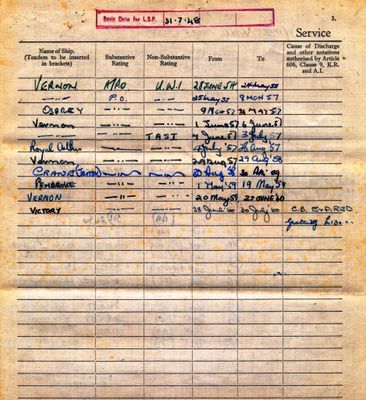 Basic Date for L.S.P. 21·7·48
3.
Service
Name of Ship. (Tenders to be inserted in brackets)
Substantive Rating
Non-Substantive Rating
From
To
Cause of Discharge and other notations authorised by Article 606, Clause 9, K.R. and A.I.
VERNON U.W.1. 28 JUNE 54 24 MAY 55
P.O. 25 MAY 55 8 MCH 57
OSPREY 9 MCH 57 MAY 57
Vernon 1 June 57 6 June 57
TAS 7 June 57 3 July 57
Royal Arthur 4 July 57 Aug 57
Vernon Aug 57 29 Aug 58
CRANE 30 Aug 58 30 Apl 59
PEMBROKE 1 May 59 19 May 59
VERNON 20 May 59 27 JUNE 60
VICTORY 28 June 60 20 July 60 C.S. EXPIRED